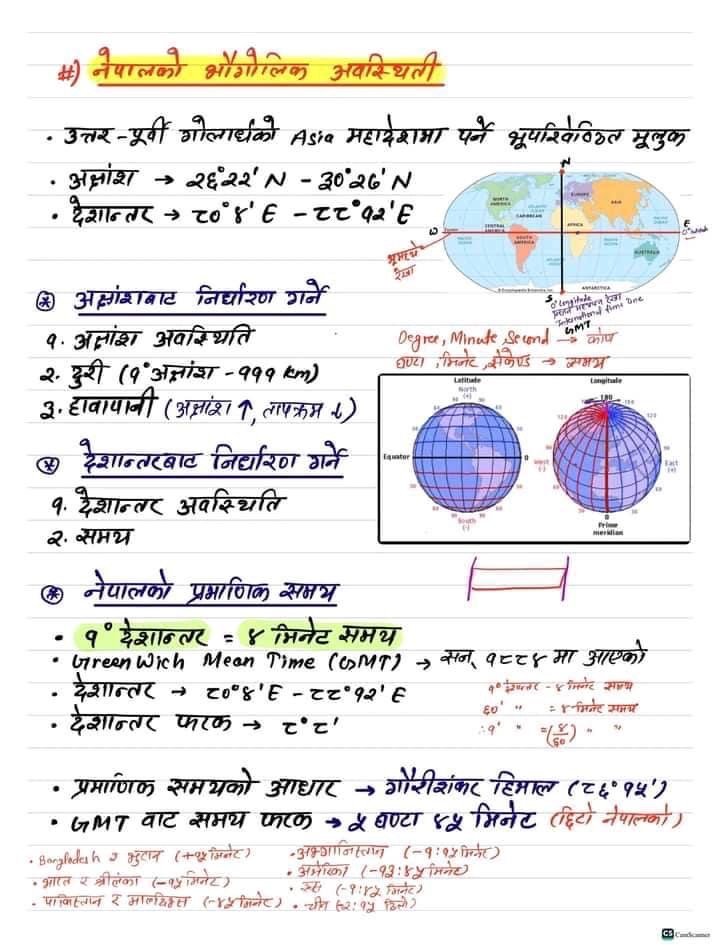 #) नेपालको भौगोलिक अवस्थिती
• उत्तर-पूर्वी गोलार्धको Asia महादेशमा पर्ने भूपरिवेष्ठित मूलुक
• अक्षांश → २६°२२' N - ३०°२७' N
• देशान्तर → ८०°४' E - ८८°१२' E
N
NORTH AMERICA
EUROPE
ASIA
ATLANTIC OCEAN
CARIBBEAN
CENTRAL AMERICA
AFRICA
PACIFIC OCEAN
SOUTH AMERICA
AUSTRALIA
ANTARCTICA
W
E
0° latitude
भूमध्य रेखा
S
0° Longitude
International time one
GMT
⊛ अक्षांशबाट निर्धारण गर्ने
१. अक्षांश अवस्थिति
२. दुरी (१° अक्षांश - १११ km)
३. हावापानी (अक्षांश ↑, तापक्रम ↓)
Degree, Minute, Second → कोण
घण्टा, मिनेट, सेकेण्ड → समय
Latitude
North
(+)
Equator
0
South
(-)
Longitude
180
West
(-)
East
(+)
0
Prime
meridian
⊛ देशान्तरबाट निर्धारण गर्ने
१. देशान्तर अवस्थिति
२. समय
⊛ नेपालको प्रमाणिक समय
• १° देशान्तर = ४ मिनेट समय
• Greenwich Mean Time (GMT) → सन् १८८४ मा आएको
• देशान्तर → ८०°४' E - ८८°१२' E
• देशान्तर फरक → ८°८'
१° देशान्तर - ४ मिनेट समय
६०' " = ४ मिनेट समय
∴ १' " = (४/६०) " "
• प्रमाणिक समयको आधार → गौरीशंकर हिमाल (८६°१५')
• GMT बाट समय फरक → ५ घण्टा ४५ मिनेट (छिटो नेपालको)
• Bangladesh र भुटान (+१५ मिनेट)
• भारत र श्रीलंका (-१५ मिनेट)
• पाकिस्तान र माल्दिभ्स (-४५ मिनेट)
• अफ्गानिस्तान (-१:१५ मिनेट)
• अमेरिका (-१३:४५ मिनेट)
• रुस (-१:४५ मिनेट)
• चीन (+२:१५ छिटो)
CS CamScanner